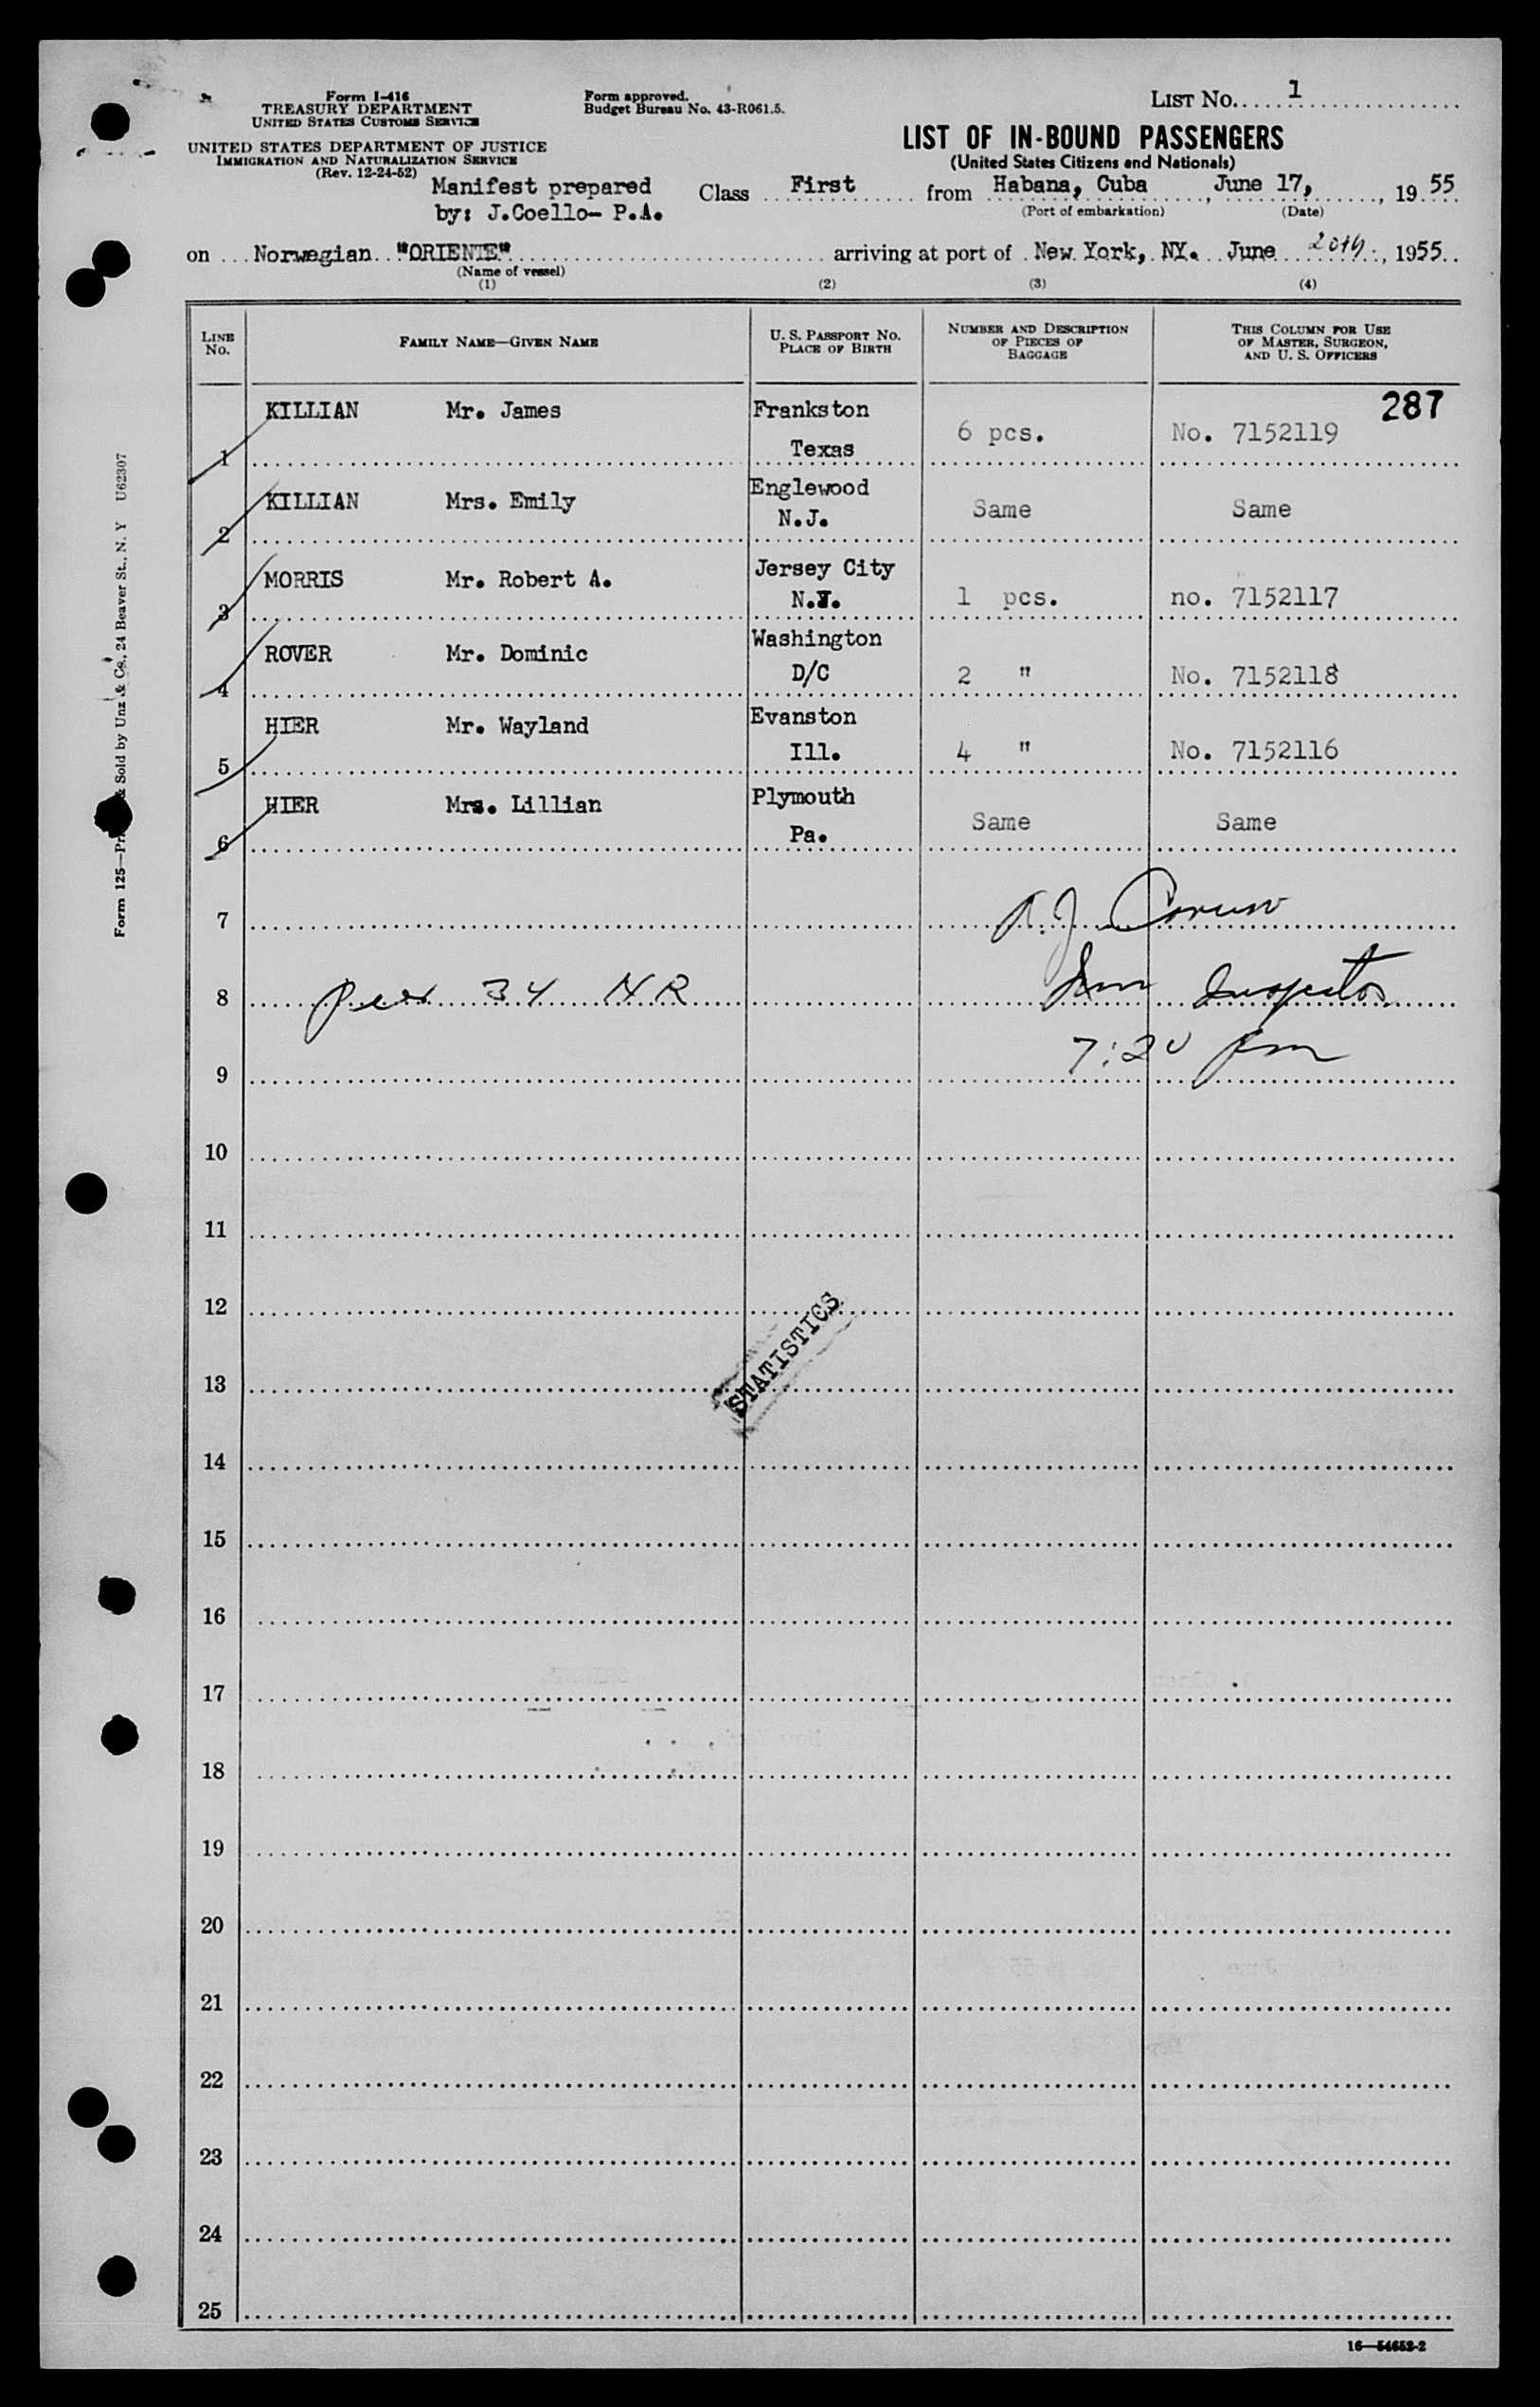 Form I-416
TREASURY DEPARTMENT
UNITED STATES CUSTOMS SERVICE
UNITED STATES DEPARTMENT OF JUSTICE
IMMIGRATION AND NATURALIZATION SERVICE
(Rev. 12-24-52)
Form approved.
Budget Bureau No. 43-R061.5.
LIST No. 1
LIST OF IN-BOUND PASSENGERS
(United States Citizens and Nationals)
Manifest prepared
by: J.Coello- P.A.
Class First from Habana, Cuba, June 17, , 19 55
(Port of embarkation) (Date)
on Norwegian "ORIENTE" arriving at port of New York, NY. June 20th, 1955
(Name of vessel)
(1) (2) (3) (4)
LINE No. FAMILY NAME—GIVEN NAME U. S. PASSPORT No. PLACE OF BIRTH NUMBER AND DESCRIPTION OF PIECES OF BAGGAGE THIS COLUMN FOR USE OF MASTER, SURGEON, AND U. S. OFFICERS
287
1 KILLIAN Mr. James Frankston Texas 6 pcs. No. 7152119
2 KILLIAN Mrs. Emily Englewood N.J. Same Same
3 MORRIS Mr. Robert A. Jersey City N.J. 1 pcs. no. 7152117
4 ROVER Mr. Dominic Washington D/C 2 " No. 7152118
5 HIER Mr. Wayland Evanston Ill. 4 " No. 7152116
6 HIER Mrs. Lillian Plymouth Pa. Same Same
7
8 Pier 34 NR Imm Inspector
9 7:20 pm
10
11
12
STATISTICS
13
14
15
16
17
18
19
20
21
22
23
24
25
16—54652-2
Form 125—Pr & Sold by Unz & Co., 24 Beaver St., N. Y U62307